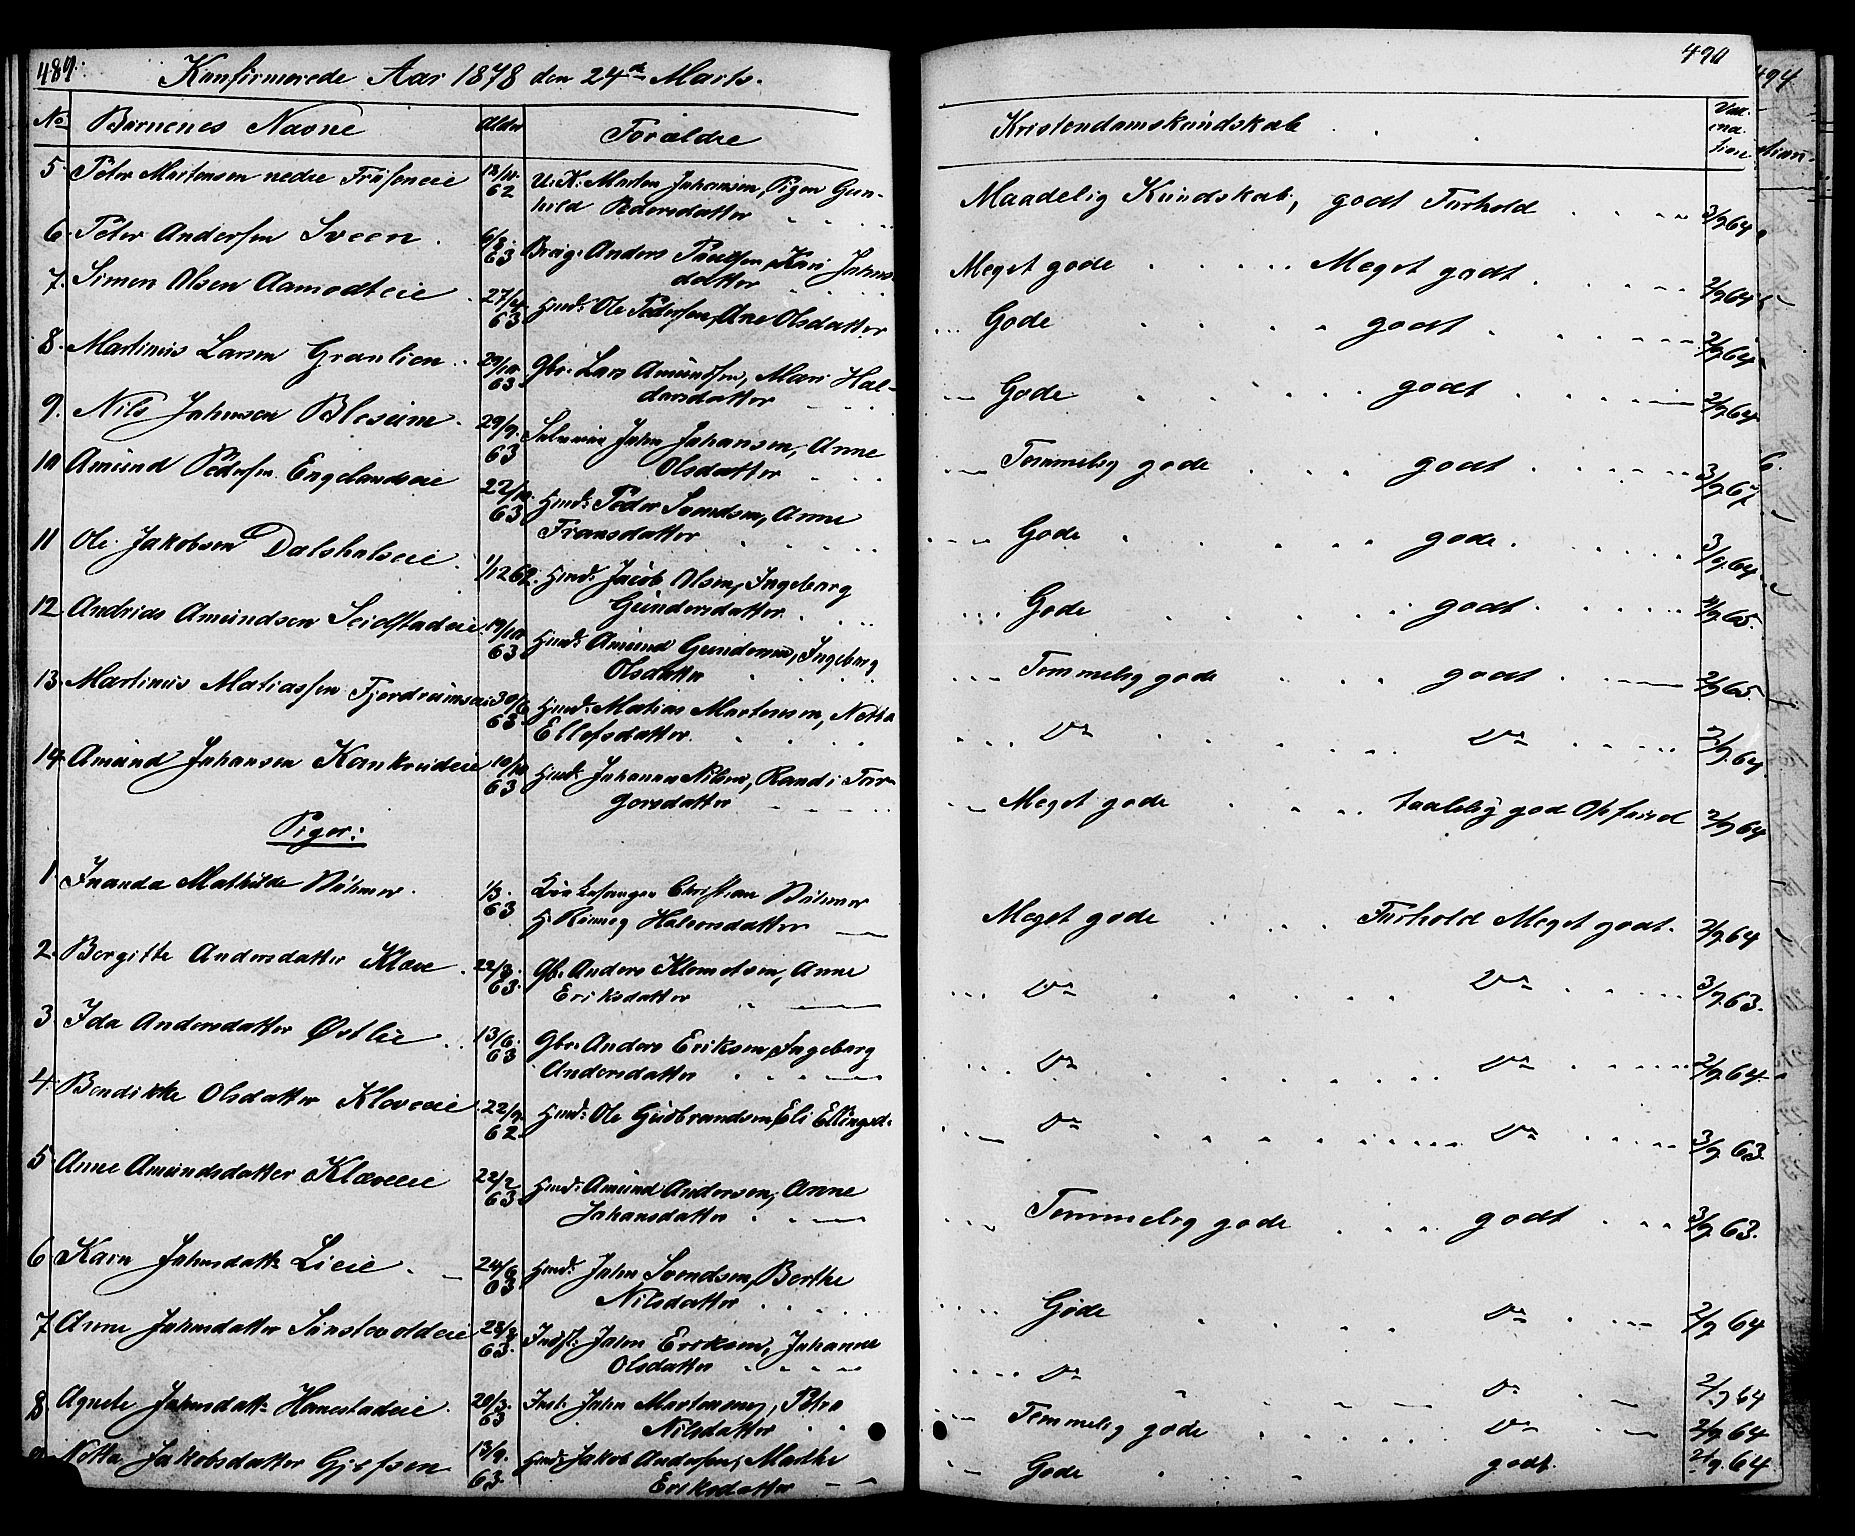 489.
Konfirmerede Aar 1878 den 24de Marts.
No Børnenes Navne Alder Forældre
5. Peter Martensen nedre 12/10 62 U: K: Marten Johansen, Pigen Gun-
hild Pedersdatter
6. Peter Andersen Sveen. 6/3. 63 Brug: Anders Paulsen, Kari Johns-
datter
7. Simen Olsen Aamodteie 27/4 63 Hmd: Ole Pedersen, Ane Olsdatter
8. Martinus Larsen Granlien. 29/10 63 Gbr. Lars Amundsen, Mari Hal-
dorsdatter
9. Nils Johnsen 29/9. 63 John Johansen, Anne
Olsdatter
10 Amund Pedersen Engelandseie 22/10. 63 Hmd: Peder Svendsen, Anne
Fransdatter
11 Ole Jakobsen Dalshalseie. 1/12 62. Hmd: Jacob Olsen, Ingeborg
Gundersdatter.
12 Andrias Amundsen 19/10 63 Hmd: Amund Gundersen, Ingeborg
Olsdatter
13. Martinus Matiassen 30/6 63 Hmd. Matias Martensen, Netta
Ellefsdatter.
14. Amund Johansen 10/10 63 Hmd. Johannes Nilsen, Randi Tor-
gersdatter
Piger:
1. Mathilde Bøhmer. 1/3. 63 Kirkesanger Christian Bøhmer
H: Rønnog Halvorsdatter
2. Borgitte Andersdatter Klæve. 22/3. 63. Gbr. Anders Klemetsen, Anne
Eriksdatter
3 Ida Andersdatter Østlie 13/6. 63 Gbr. Anders Eriksen, Ingeborg
Andersdatter
4. Bendikke Olsdatter Kloveeie 22/9. 62. Hmd: Ole Gudbrandsen, Eli Ellingsd.
5 Anne Amundsdatter Klæveeie 22/2 63. Hmd: Amund Andersen, Anne
Johansdatter
6 Karn Johnsdatt: Lieie. 24/6 63 Hmd: John Svendsen, Berthe
Nilsdatter
7 Anne Johnsdatter 63. Indst: John Eriksen, Johanne
Olsdatter
8 Agnete Johnsdatt: 20/3. 63 Inst: John Martensen, Petra
Nilsdatter
9 Netta Jakobsdatter 13/9. 63. Hmd: Jakob Andersen, Marthe
Eriksdatter
490
Kristendomskundskab Vac- cina- tion
Maadelig Kundskab, godt Forhold 3/9 64
Meget gode Meget godt 2/9 64
Gode godt 2/9 64
Gode godt 2/9 64
Temmelig gode godt 3/9. 67
Gode gode. 3/9. 64
Gode godt 65.
Temmelig gode godt 2/9 65.
Do Do 2/9. 64
Meget gode taalelig god Opførsel 2/9 64
Meget gode Forhold Meget godt. 2/9 64
Do Do 3/9. 63.
Do Do 2/9. 64
Do Do 3/9. 63.
Temmelig gode godt 3/9. 63.
Gode Do 2/9 64
Do Do 2/9 64
Temmelig gode Do 2/9 64
Gode godt. 2/9. 64
494